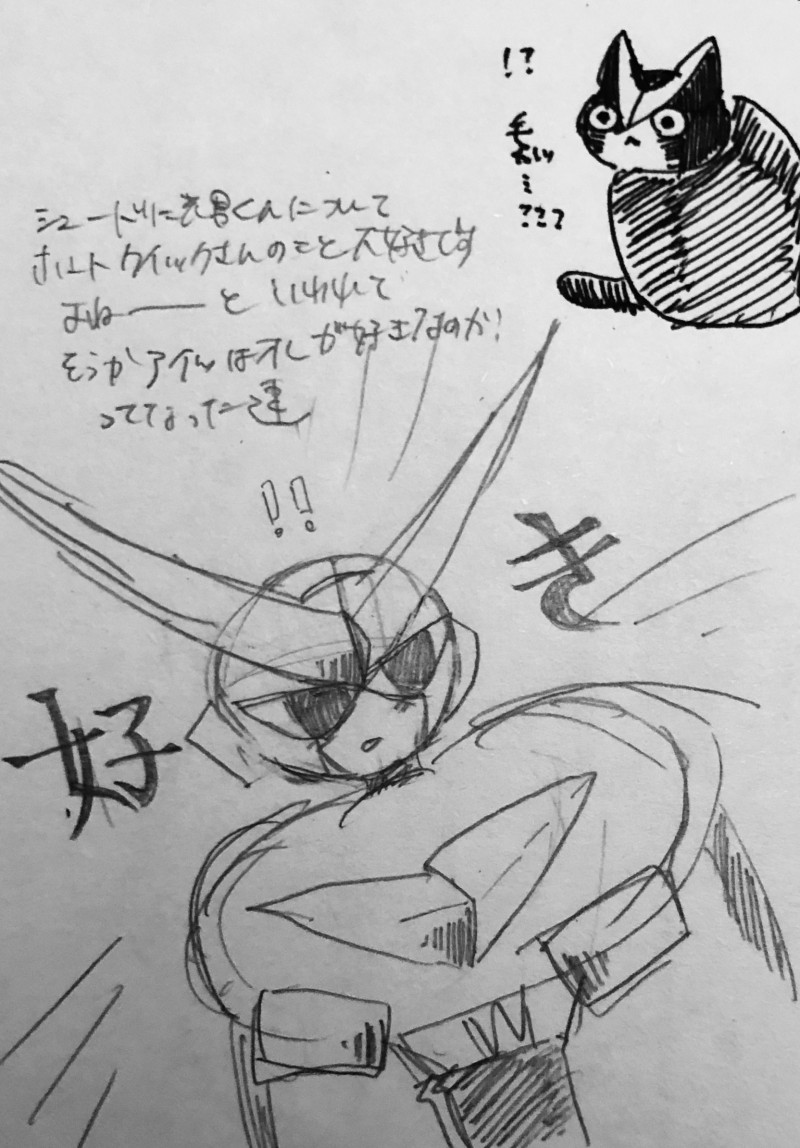 !?
???
シュートリに光男くんについて
ホントクイックさんのこと大好きです
よねーーと いわれて
そうかアイツはオレが好きなのか!
ってなった達
!!
好
き
W